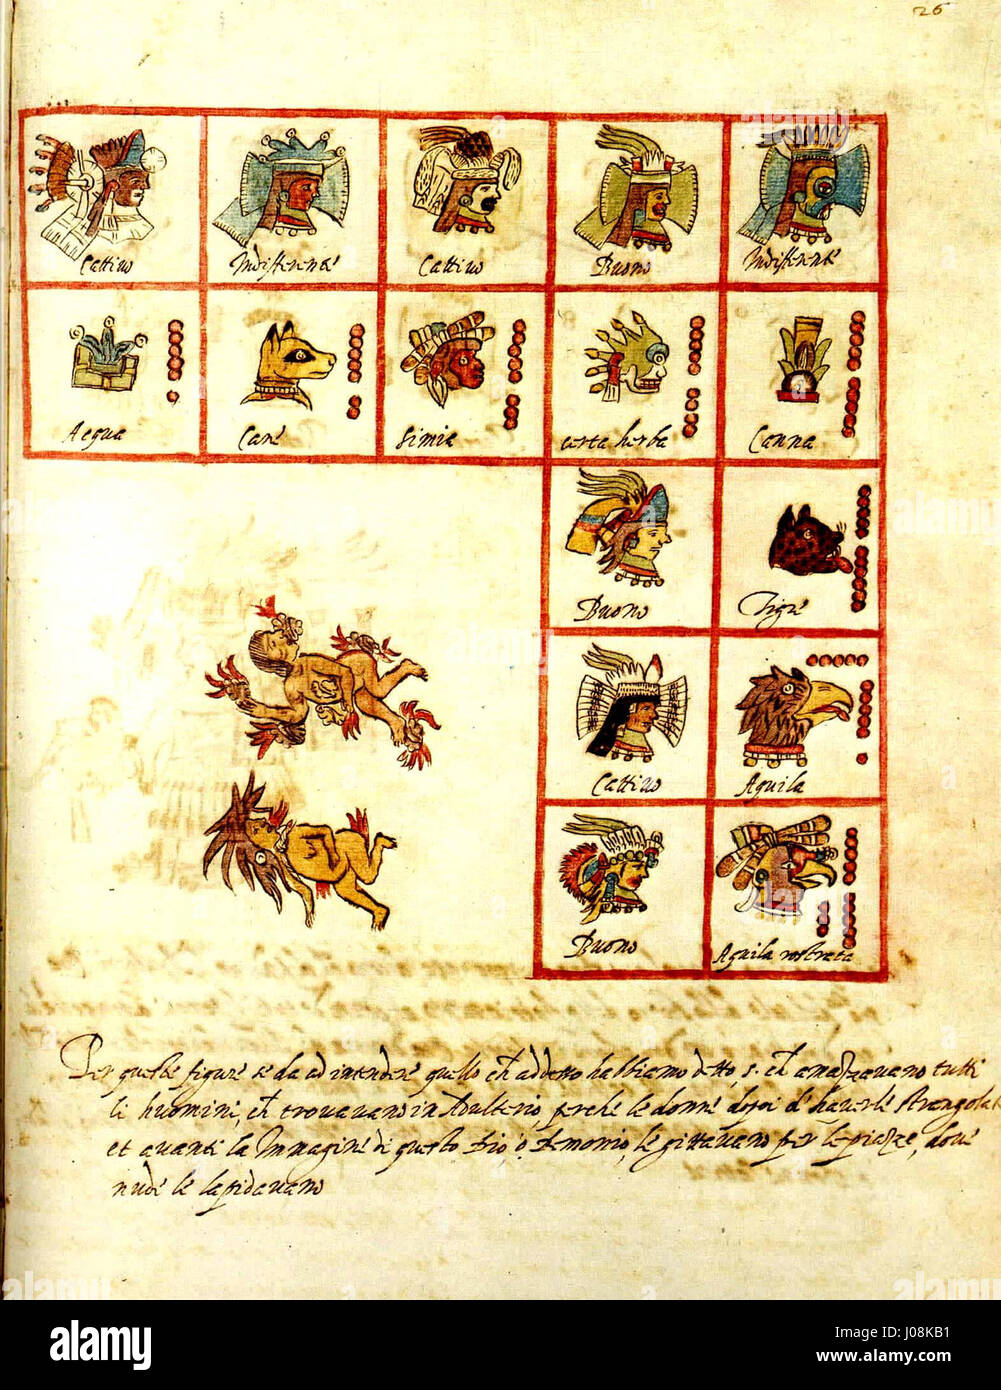 26
Cattivo Indifferente Cattivo Buono Indifferente
Acqua Cane Simia certa herba Canna
Buono Tigre
Cattivo Aquila
Buono Aquila rostrata
Per queste figure se da ad intendere quello ch̃ addetto habbiamo detto, s. ch̃ amazzavano tutti
li huomini, ch̃ trovavano in Adulterio, perche le donne dopoi d'haverle
et avanti la Immagine di questo Dio, o Demonio, le gittavano per le piazze, dove
nude le lapidavano
alamy
Image ID: J08KB1
www.alamy.com